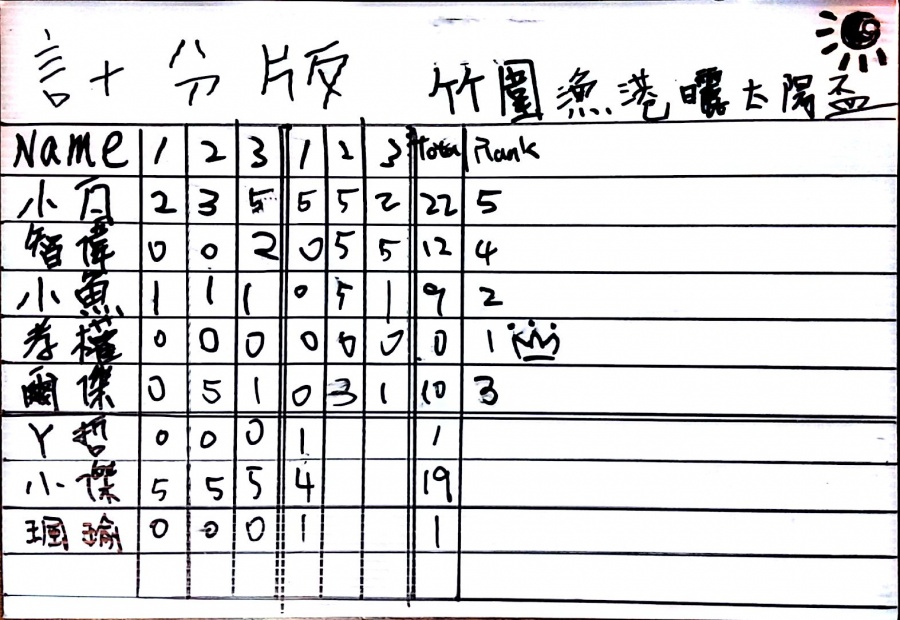 計十分版 竹圍漁港曬太陽盃
Name 1 2 3 1 2 3 Total Rank
小百 2 3 5 5 5 2 22 5
智偉 0 0 2 0 5 5 12 4
小魚 1 1 1 0 5 1 9 2
孝權 0 0 0 0 0 0 0 1
爾傑 0 5 1 0 3 1 10 3
丫哲 0 0 0 1 1
小傑 5 5 5 4 19
珮瑜 0 0 0 1 1